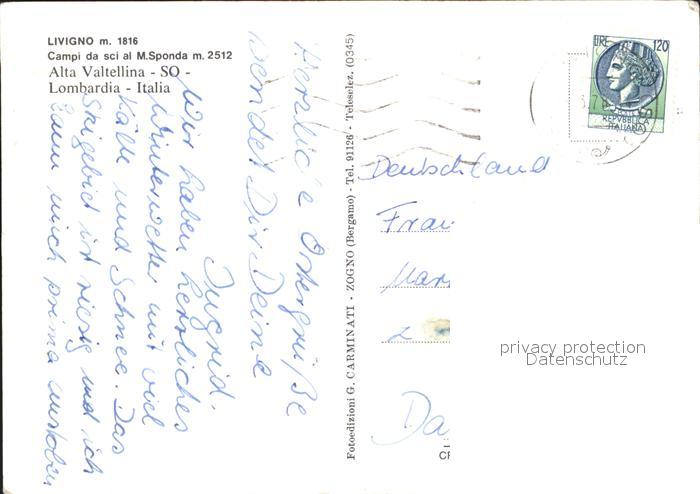 LIVIGNO m. 1816
Campi da sci al M.Sponda m. 2512
Alta Valtellina - SO -
Lombardia - Italia
Herzliche Ostergrüße
sendet Dir Deine
Ingrid.
Wir haben herrliches
Winterwetter mit viel
Kälte und Schnee. Das
Skigebiet ist riesig und ich
kann mich prima austoben
Fotoedizioni G. CARMINATI - ZOGNO (Bergamo) - Tel. 91126 - Teleselez. (0345)
LIRE 120
REPVBBLICA
ITALIANA
Deutschland
Frau
Mar
Da
privacy protection
Datenschutz